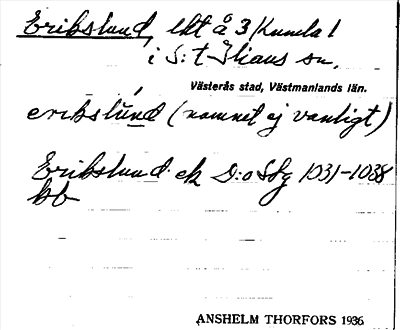 Erikslund, lht å 3/Kumla 1
i S:t Ilians sn,
Västerås stad, Västmanlands län.
erikslùnd (namnet ej vanligt)
Erikslund ek D:o Sbg 1031-1038
hb
ANSHELM THORFORS 1936